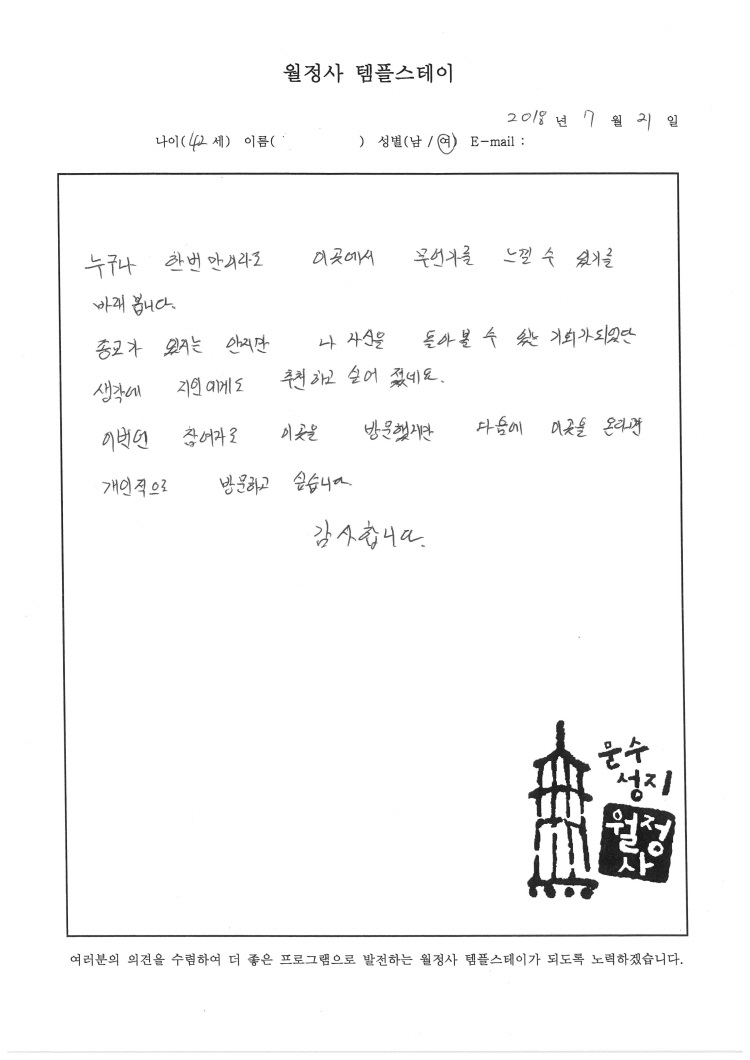 월정사 템플스테이
2018 년 7 월 21 일
나이(42 세) 이름( ) 성별(남 / 여) E-mail :
누구나 한번 만이라도 이곳에서 무언가를 느낄 수 있기를
바래 봅니다.
종교가 있지는 안지만 나 자신을 돌아볼 수 있는 기회가되었단
생각에 지인에게도 추천하고 싶어 졌네요.
이번엔 참여자로 이곳을 방문했지만 다음에 이곳을 온다면
개인적으로 방문하고 싶습니다.
감사합니다.
문수
성지
월정
사
여러분의 의견을 수렴하여 더 좋은 프로그램으로 발전하는 월정사 템플스테이가 되도록 노력하겠습니다.